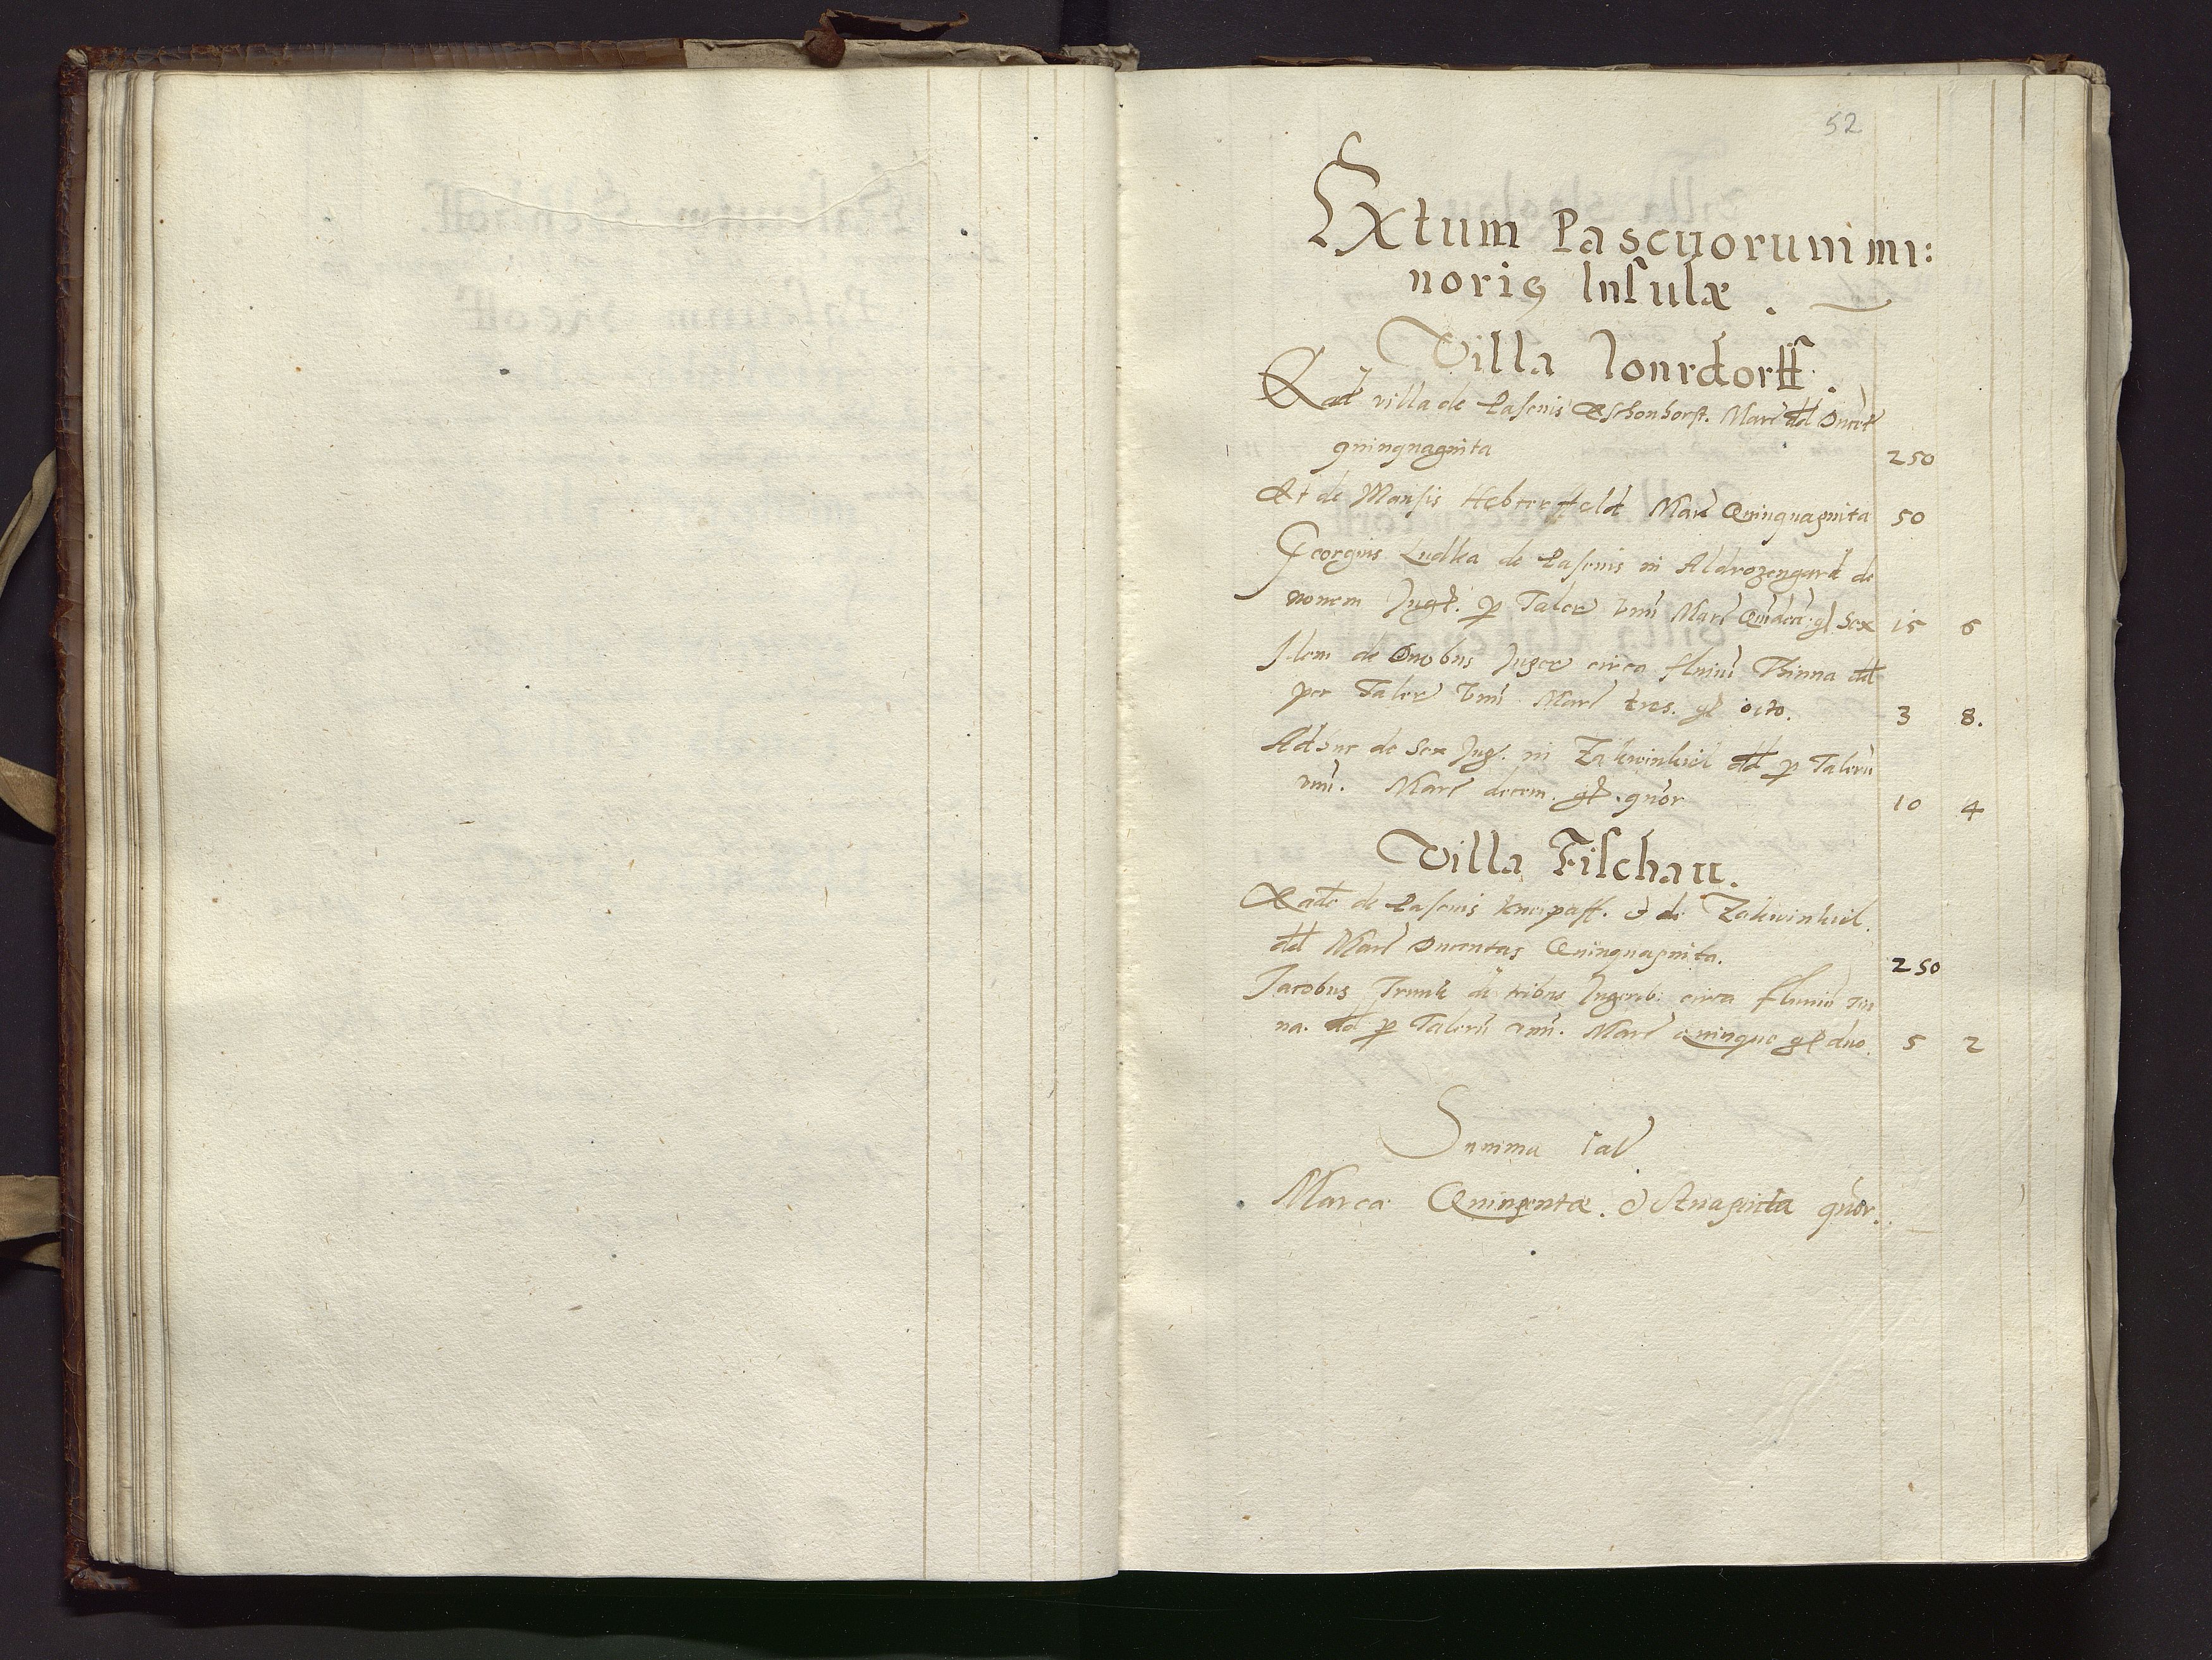 52
Extum Pascuorum mi:
noris Insulæ.
Villa Jonrdorff.
Ead villa de Pascuis Eschonhorst. Marc dd Ducet
quinquaginta 250
Et de Mansis Hebrerffeldt Marc Quinquaginta 50
Georgius Ludka de Pascuis in Aldrozengard de
nonem Juge. p Taler vnū Marc Quīdeci gl Sex 15 6
Item de Duobus Juger circa fluiū Thinna dd
per Taler Vnū Marc tres. gl octo. 3 8.
Adhuc de Sex Jug. in Zakwinkiel dd p Talerū
vnū. Marc decem. gl. quor 10 4
Villa Fischau.
Eade de Pascuis Kneipaff. & de Zakwinkiel.
dd Marc Ducentas Quinquaginta. 250
Jacobus Trunk de tribus Jugerib. circa fluuiū Tin
na. dd p Talerū vnū. Marc Quinque gl duo. 5 2
Summa
Marcæ Quingentæ. & quor.